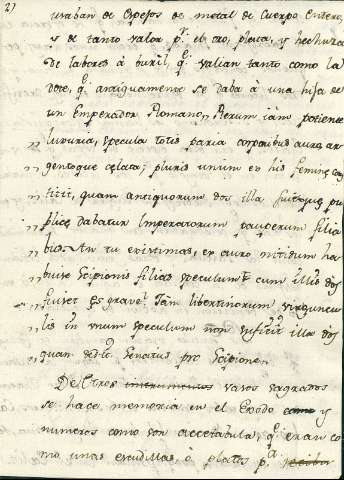 27
usaban de Espejos de metal de Cuerpo entero,
y de tanto valor p.r el oro, plata, y hechura
de labores à buril, q.e valian tanto como la
dote, q.e antiguamente se daba à una hija de
un Emperador Romano,, Rerum iàm potiente
,, luxuria, specula totis paria corporibus auro, ar
,, gentoque cęlata; pluris unum ex his feminę cons
,, titit, quam antiquorum dos illa fuit, quę pu
,, blicę dabatur Imperatorum pauperum filia
,, bus. An tu existimas, ex auro nitidum ha
,, buisse Scipionis filias speculum? cum illis dos
,, fuisset ęs grave? Iam libertinorum virguncu
,, lis in unum speculum non sufficit illa dos
,, quam dedit Senatus pro Scipione.
De Otros instrumentos vasos sagrados
se hace memoria en el Exodo como y
numeros como son accetabula, q.e eran co
mo unas escudillas ò platos p.a recibir